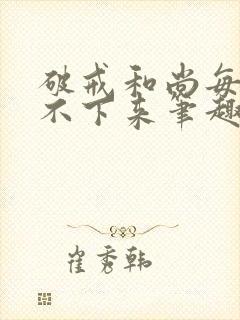 破戒和尚每
不下来笔趣
崔秀韩